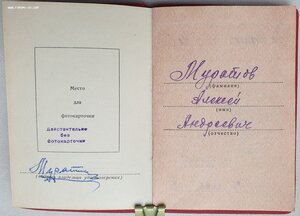 Место
для
фотокарточки
Действительно
без
фотокарточки
(личная подпись владельца удостоверения)
Муратов
(фамилия)
Алексей
(имя)
Андреевич
(отчество)